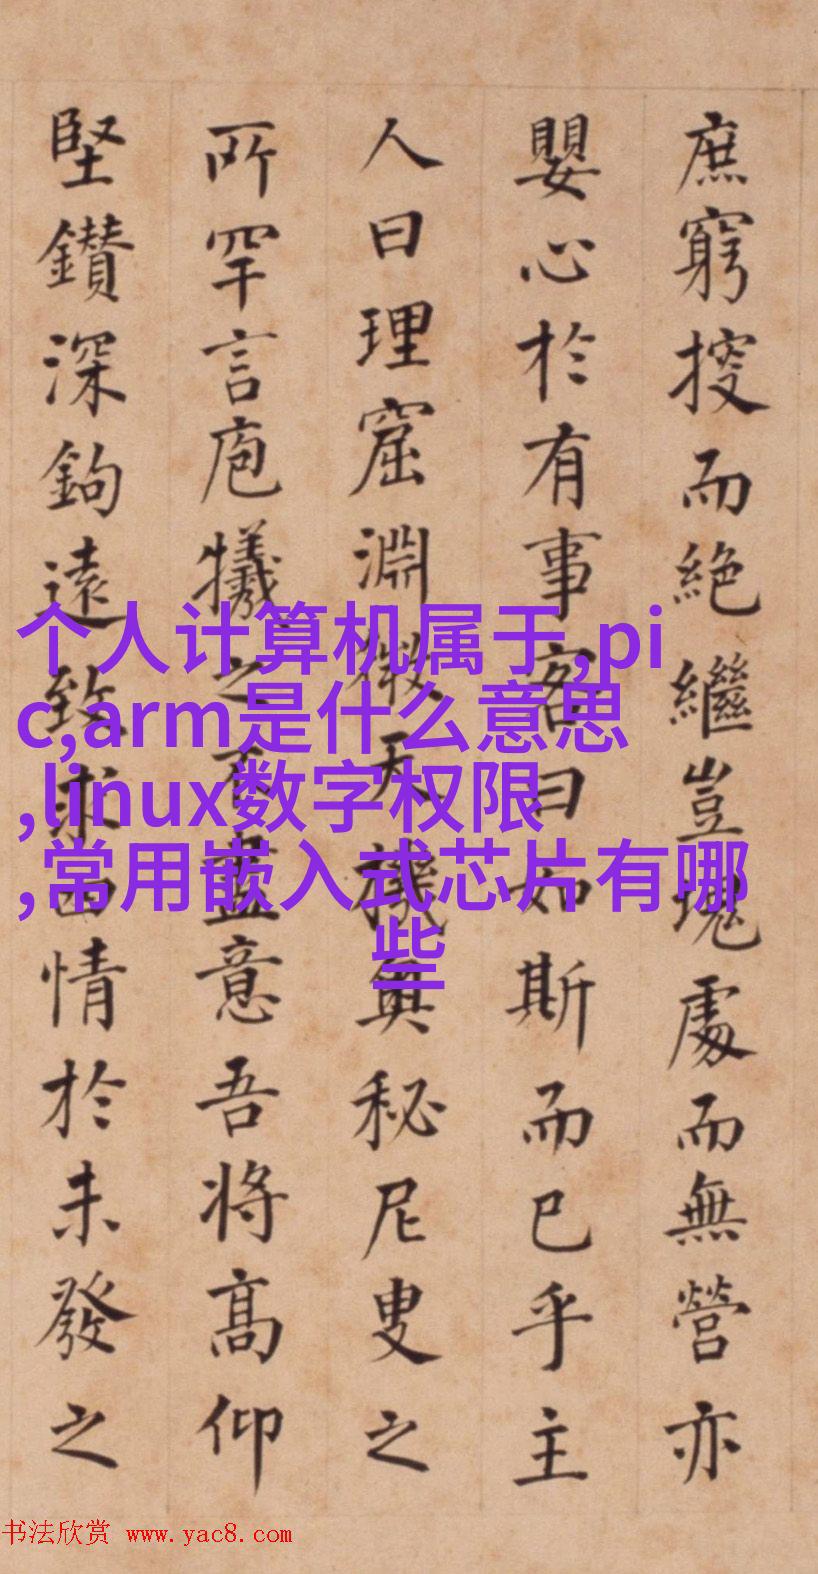 庶窮搜而絶繼豈塊處而無營亦
嬰心於有事客曰如斯而已乎主
人曰理窟淵微天機奥秘尼叟之
所罕言庖犧之不盡意吾將髙仰
堅鑽深鉤遠致求四情於未發之
个人计算机属于,pi
c,arm是什么意思
,linux数字权限
,常用嵌入式芯片有哪
些
书法欣赏 www.yac8.com